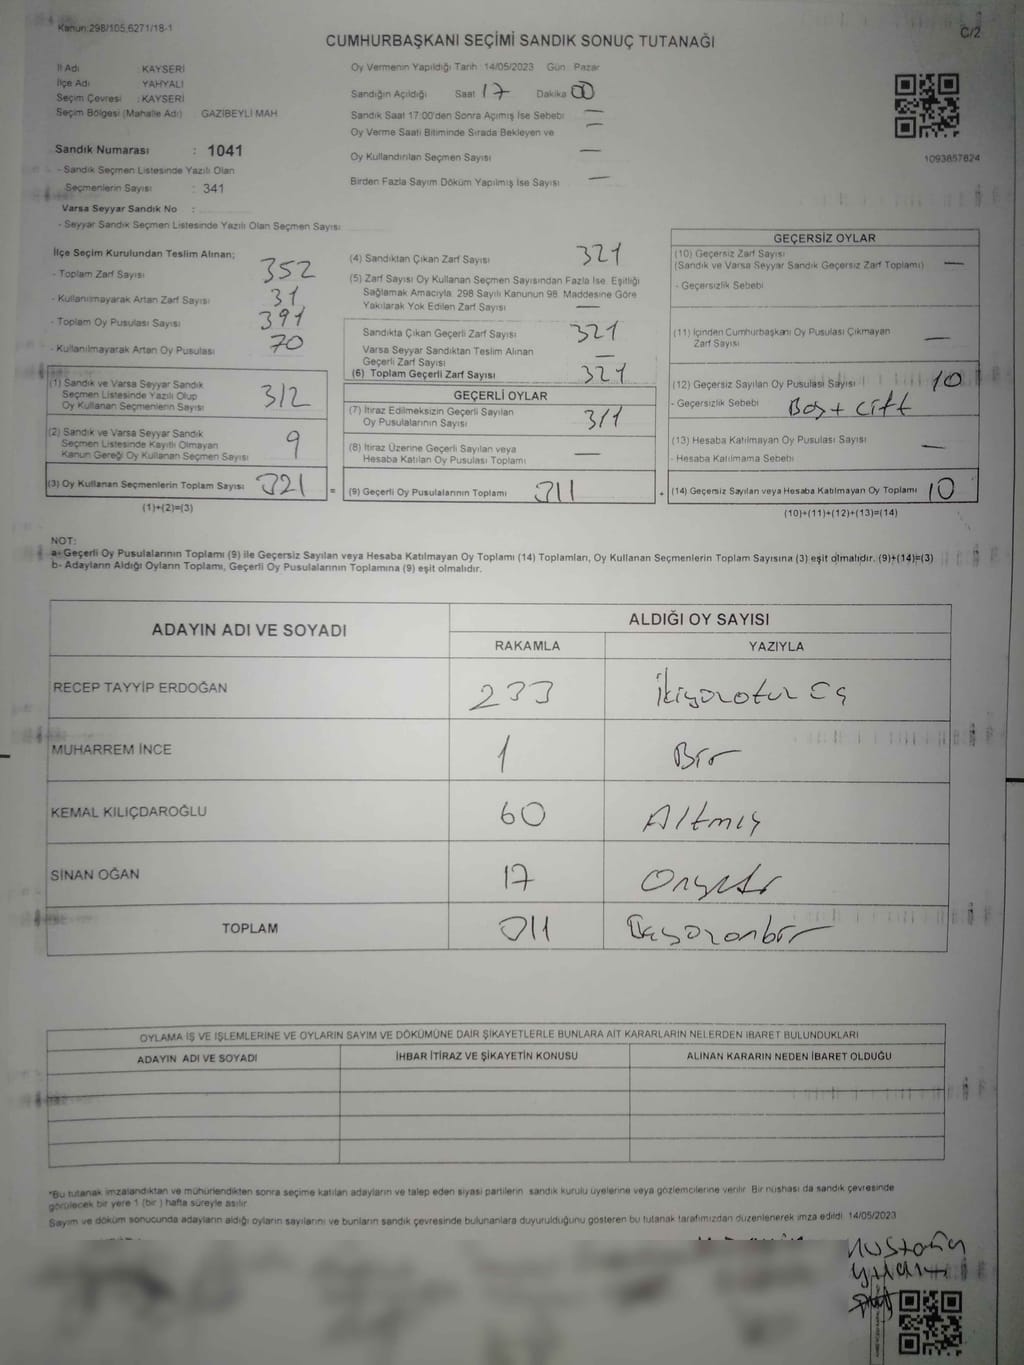 Kanun:298/105,6271/18-1
C/2
CUMHURBAŞKANI SEÇİMİ SANDIK SONUÇ TUTANAĞI
İl Adı : KAYSERİ
İlçe Adı : YAHYALI
Seçim Çevresi : KAYSERİ
Seçim Bölgesi (Mahalle Adı) GAZİBEYLİ MAH
Sandık Numarası : 1041
- Sandık Seçmen Listesinde Yazılı Olan
Seçmenlerin Sayısı : 341
Varsa Seyyar Sandık No :
- Seyyar Sandık Seçmen Listesinde Yazılı Olan Seçmen Sayısı:
Oy Vermenin Yapıldığı Tarih :14/05/2023 Gün : Pazar
Sandığın Açıldığı Saat 17 Dakika 00
Sandık Saat 17:00'den Sonra Açımış İse Sebebi : —
Oy Verme Saati Bitiminde Sırada Bekleyen ve —
Oy Kullandırılan Seçmen Sayısı —
Birden Fazla Sayım Döküm Yapılmış İse Sayısı —
1093857824
İlçe Seçim Kurulundan Teslim Alınan;
- Toplam Zarf Sayısı 352
- Kullanılmayarak Artan Zarf Sayısı 31
- Toplam Oy Pusulası Sayısı 391
- Kullanılmayarak Artan Oy Pusulası 70
(1) Sandık ve Varsa Seyyar Sandık
Seçmen Listesinde Yazılı Olup
Oy Kullanan Seçmenlerin Sayısı 312
(2) Sandık ve Varsa Seyyar Sandık
Seçmen Listesinde Kayıtlı Olmayan
Kanun Gereği Oy Kullanan Seçmen Sayısı 9
(3) Oy Kullanan Seçmenlerin Toplam Sayısı 321
(1)+(2)=(3)
(4) Sandıktan Çıkan Zarf Sayısı 321
(5) Zarf Sayısı Oy Kullanan Seçmen Sayısından Fazla İse, Eşitliği
Sağlamak Amacıyla, 298 Sayılı Kanunun 98. Maddesine Göre
Yakılarak Yok Edilen Zarf Sayısı —
Sandıkta Çıkan Geçerli Zarf Sayısı 321
Varsa Seyyar Sandıktan Teslim Alınan
Geçerli Zarf Sayısı —
(6) Toplam Geçerli Zarf Sayısı 321
GEÇERLİ OYLAR
(7) İtiraz Edilmeksizin Geçerli Sayılan
Oy Pusulalarının Sayısı 311
(8) İtiraz Üzerine Geçerli Sayılan veya
Hesaba Katılan Oy Pusulası Toplamı —
= (9) Geçerli Oy Pusulalarının Toplamı 311 +
GEÇERSİZ OYLAR
(10) Geçersiz Zarf Sayısı
(Sandık ve Varsa Seyyar Sandık Geçersiz Zarf Toplamı) —
- Geçersizlik Sebebi
(11) İçinden Cumhurbaşkanı Oy Pusulası Çıkmayan
Zarf Sayısı —
(12) Geçersiz Sayılan Oy Pusulası Sayısı 10
- Geçersizlik Sebebi Boş + Çift
(13) Hesaba Katılmayan Oy Pusulası Sayısı —
- Hesaba Katılmama Sebebi
(14) Geçersiz Sayılan veya Hesaba Katılmayan Oy Toplamı 10
(10)+(11)+(12)+(13)=(14)
NOT:
a- Geçerli Oy Pusulalarının Toplamı (9) ile Geçersiz Sayılan veya Hesaba Katılmayan Oy Toplamı (14) Toplamları, Oy Kullanan Seçmenlerin Toplam Sayısına (3) eşit olmalıdır. (9)+(14)=(3)
b- Adayların Aldığı Oyların Toplamı, Geçerli Oy Pusulalarının Toplamına (9) eşit olmalıdır.
ADAYIN ADI VE SOYADI ALDIĞI OY SAYISI
RAKAMLA YAZIYLA
RECEP TAYYİP ERDOĞAN 233 İkiyüzotuz üç
MUHARREM İNCE 1 Bir
KEMAL KILIÇDAROĞLU 60 Altmış
SİNAN OĞAN 17 Onyedi
TOPLAM 311 Üçyüzonbir
OYLAMA İŞ VE İŞLEMLERİNE VE OYLARIN SAYIM VE DÖKÜMÜNE DAİR ŞİKAYETLERLE BUNLARA AİT KARARLARIN NELERDEN İBARET BULUNDUKLARI
ADAYIN ADI VE SOYADI İHBAR İTİRAZ VE ŞİKAYETİN KONUSU ALINAN KARARIN NEDEN İBARET OLDUĞU
*Bu tutanak imzalandıktan ve mühürlendikten sonra seçime katılan adayların ve talep eden siyasi partilerin sandık kurulu üyelerine veya gözlemcilerine verilir. Bir nüshası da sandık çevresinde
görülecek bir yere 1 (bir) hafta süreyle asılır.
Sayım ve döküm sonucunda adayların aldığı oyların sayılarını ve bunların sandık çevresinde bulunanlara duyurulduğunu gösteren bu tutanak tarafımızdan düzenlenerek imza edildi. 14/05/2023
Mustafa